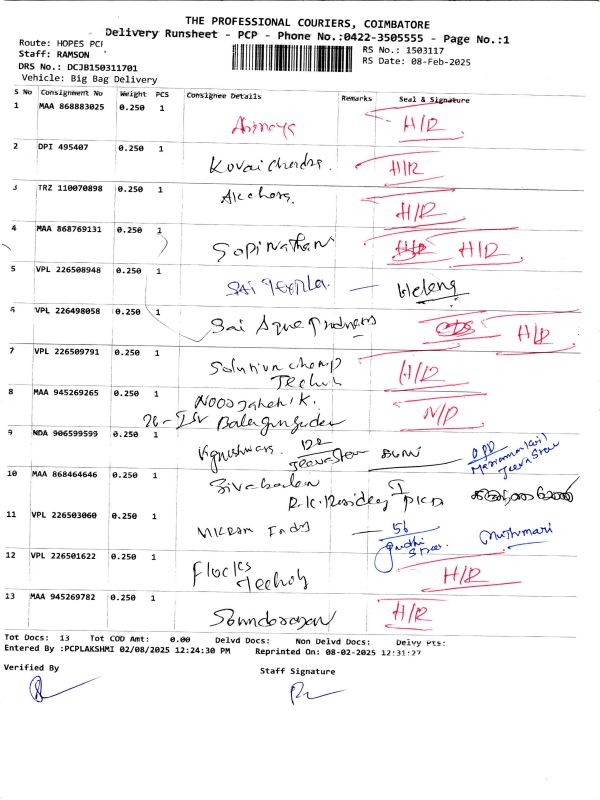 THE PROFESSIONAL COURIERS, COIMBATORE
Delivery Runsheet - PCP - Phone No.:0422-3505555 - Page No.:1
Route: HOPES PCP
RS No.: 1503117
Staff: RAMSON
RS Date: 08-Feb-2025
DRS No.: DCJB150311701
Vehicle: Big Bag Delivery
S No Consignment No Weight PCS Consignee Details Remarks Seal & Signature
1 MAA 868883025 0.250 1 H/R
2 DPI 495407 0.250 1 Kovai Chandra H/R
3 TRZ 110070898 0.250 1 H/R
4 MAA 868769131 0.250 1 Gopinathan H/R H/R
5 VPL 226508948 0.250 1 Sai - Helena
6 VPL 226498058 0.250 1 Sai H/R
7 VPL 226509791 0.250 1 Solution Chemp H/R
Techh
8 MAA 945269265 0.250 1 Noorjahen K. N/D
9 NDA 906599599 0.250 1 Vigneshwar.
10 MAA 868464646 0.250 1 Sivabalan
11 VPL 226503060 0.250 1 Vikram - 56
Gandhi Muthumari
12 VPL 226501622 0.250 1 H/R
13 MAA 945269782 0.250 1 Soundarajan H/R
Tot Docs: 13 Tot COD Amt: 0.00 Delvd Docs: Non Delvd Docs: Delvy Pts:
Entered By :PCPLAKSHMI 02/08/2025 12:24:30 PM Reprinted On: 08-02-2025 12:31:27
Verified By Staff Signature